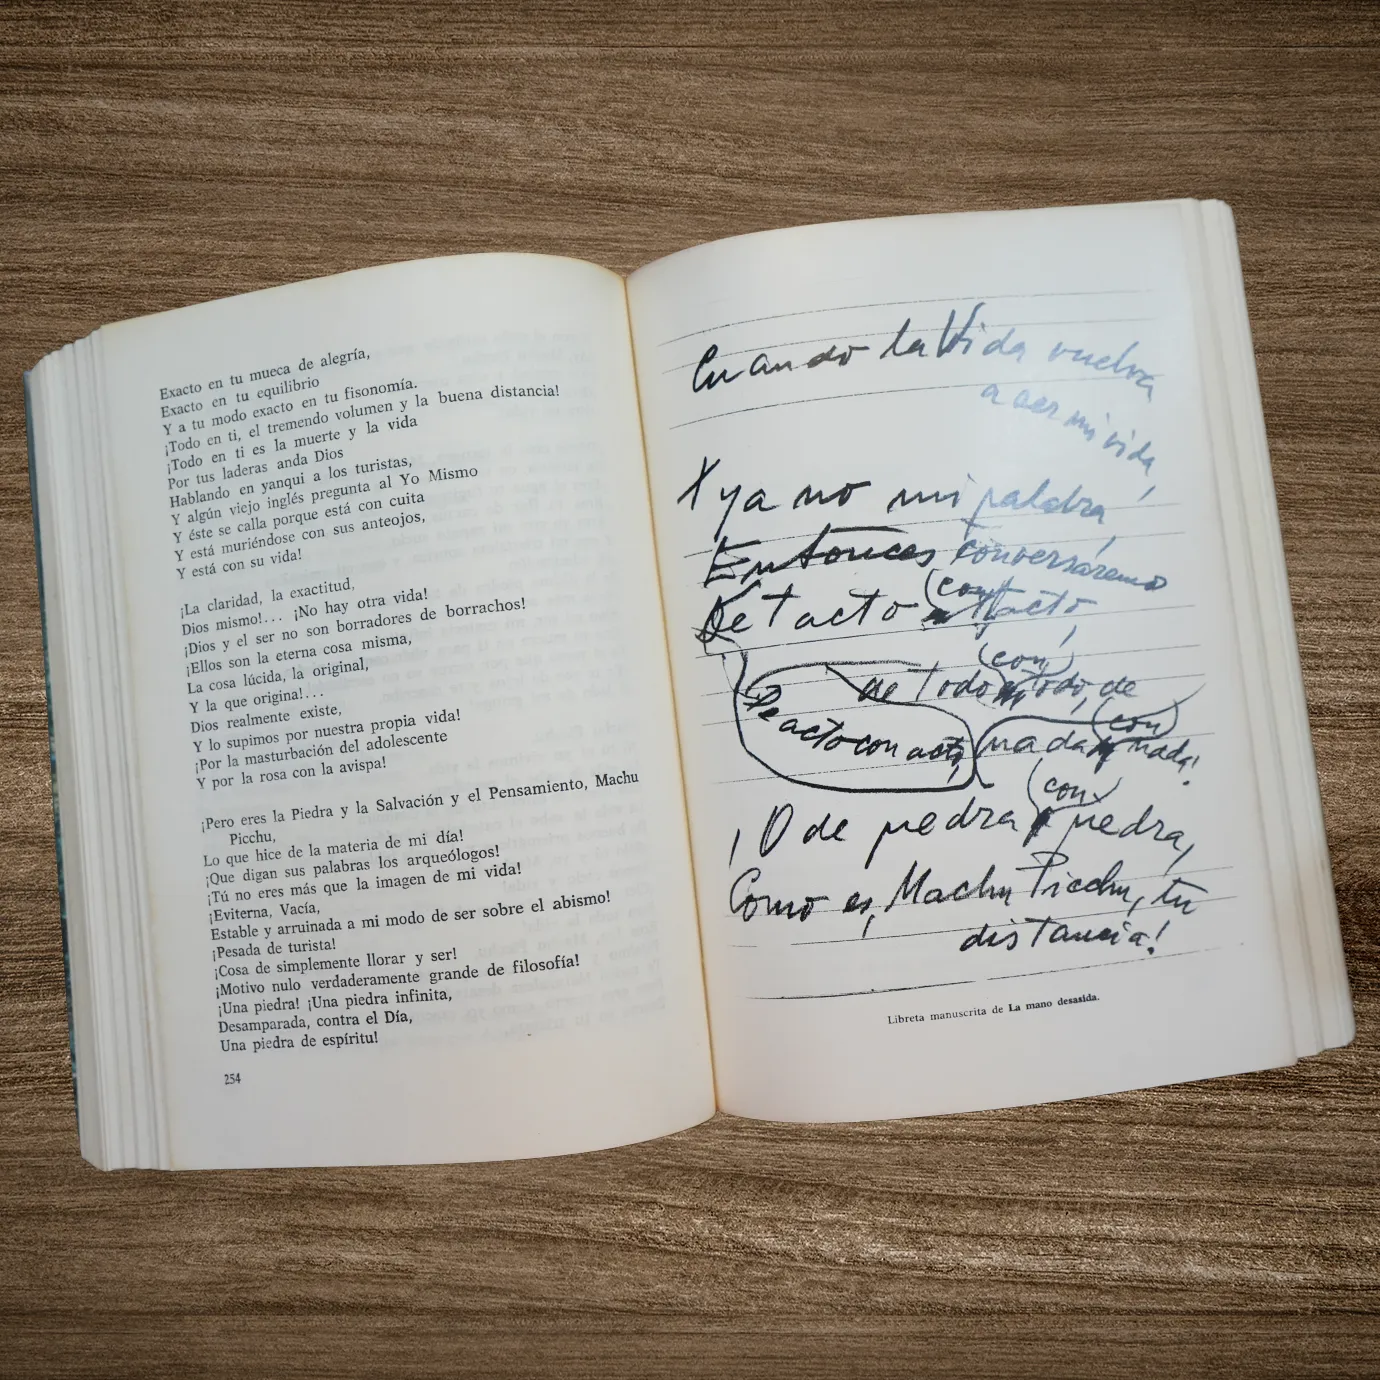 Exacto en tu mueca de alegría,
Exacto en tu equilibrio
Y a tu modo exacto en tu fisonomía.
¡Todo en ti, el tremendo volumen y la buena distancia!
¡Todo en ti es la muerte y la vida
Por tus laderas anda Dios
Hablando en yanqui a los turistas,
Y algún viejo inglés pregunta al Yo Mismo
Y éste se calla porque está con cuita
Y está muriéndose con sus anteojos,
Y está con su vida!
¡La claridad, la exactitud,
Dios mismo!... ¡No hay otra vida!
¡Dios y el ser no son borradores de borrachos!
¡Ellos son la eterna cosa misma,
La cosa lúcida, la original,
Y la que origina!...
Dios realmente existe,
Y lo supimos por nuestra propia vida!
¡Por la masturbación del adolescente
Y por la rosa con la avispa!
¡Pero eres la Piedra y la Salvación y el Pensamiento, Machu
Picchu,
Lo que hice de la materia de mi día!
¡Que digan sus palabras los arqueólogos!
¡Tú no eres más que la imagen de mi vida!
¡Eviterna, Vacía,
Estable y arruinada a mi modo de ser sobre el abismo!
¡Pesada de turista!
¡Cosa de simplemente llorar y ser!
¡Motivo nulo verdaderamente grande de filosofía!
¡Una piedra! ¡Una piedra infinita,
Desamparada, contra el Día,
Una piedra de espíritu!
254
Cuando la Vida vuelva
a ser mi vida,
Y ya no mi palabra,
Entonces conversáremos
De tacto con tacto,
de Todo con Todo, de
De acto con acto,
nada con nada!
¡O de piedra con piedra,
Como es, Machu Picchu, tu
distancia!
Libreta manuscrita de La mano desasida.